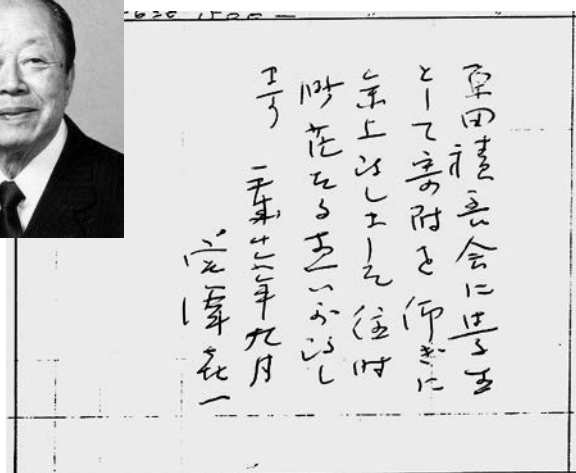 原田積善会に学生
として寄附を仰ぎに
参上致しまして 往時
渺茫たる思いが致し
ます
平成十六年九月
宮澤喜一